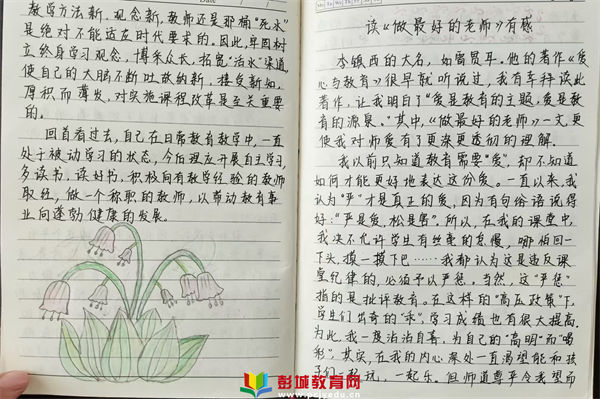 教学方法新，观念新，教师还是那桶“死水”
是绝对不能适应时代要求的。因此，牢固树
立终身学习观念，博采众长，拓宽“活水”渠道，
使自己的大脑不断吐故纳新，接受新知，
厚积而薄发，对实施课程改革是至关重要
的。
回首看过去，自己在日常教育教学中，一直
处于被动学习的状态，今后理应开展自主学习，
多读书，读好书，积极向有教学经验的教师
取经，做一个称职的教师，以带动教育事
业向蓬勃健康的发展。
Date
读《做最好的老师》有感
李镇西的大名，如雷贯耳。他的著作《爱
心与教育》很早就听说过，我有幸拜读此
著作，让我明白了“爱是教育的主题，爱是教
育的源泉。”其中，《做最好的老师》一文，更
使我对师爱有了更深更透彻的理解。
我以前只知道教育需要“爱”，却不知道
如何才能更好地表达这份爱。一直以来，我
认为“严”才是真正的爱，因为有句俗语说得
好：“严是爱，松是害”，所以，在我的课堂中，
我决不允许学生有丝毫的怠慢，哪怕回一
下头，摸一摸下巴……我都认为这是违反课
堂纪律的，必须予以严惩。当然，这“严惩”
指的是批评教育。在这样的“高压政策”下，
学生们出奇的“乖”，学习成绩也有很大提高。
为此，我一度沾沾自喜，为自己的“高明”而“喝
彩”，其实，在我的内心深处一直渴望能和孩
子们一起玩，一起乐。但师道尊严令我望而
彭城教育网
www.pcjyedu.cn